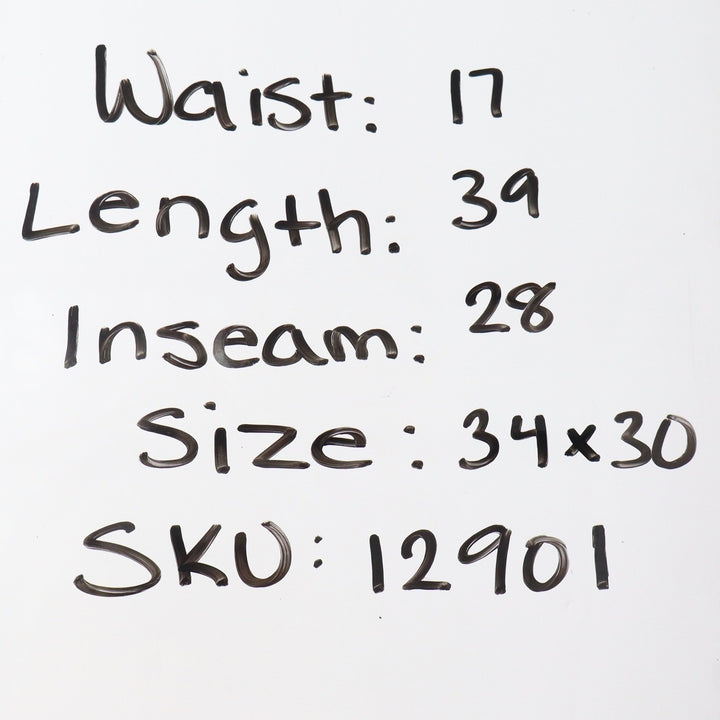 Waist: 17
Length: 39
Inseam: 28
Size: 34x30
SKU: 12901